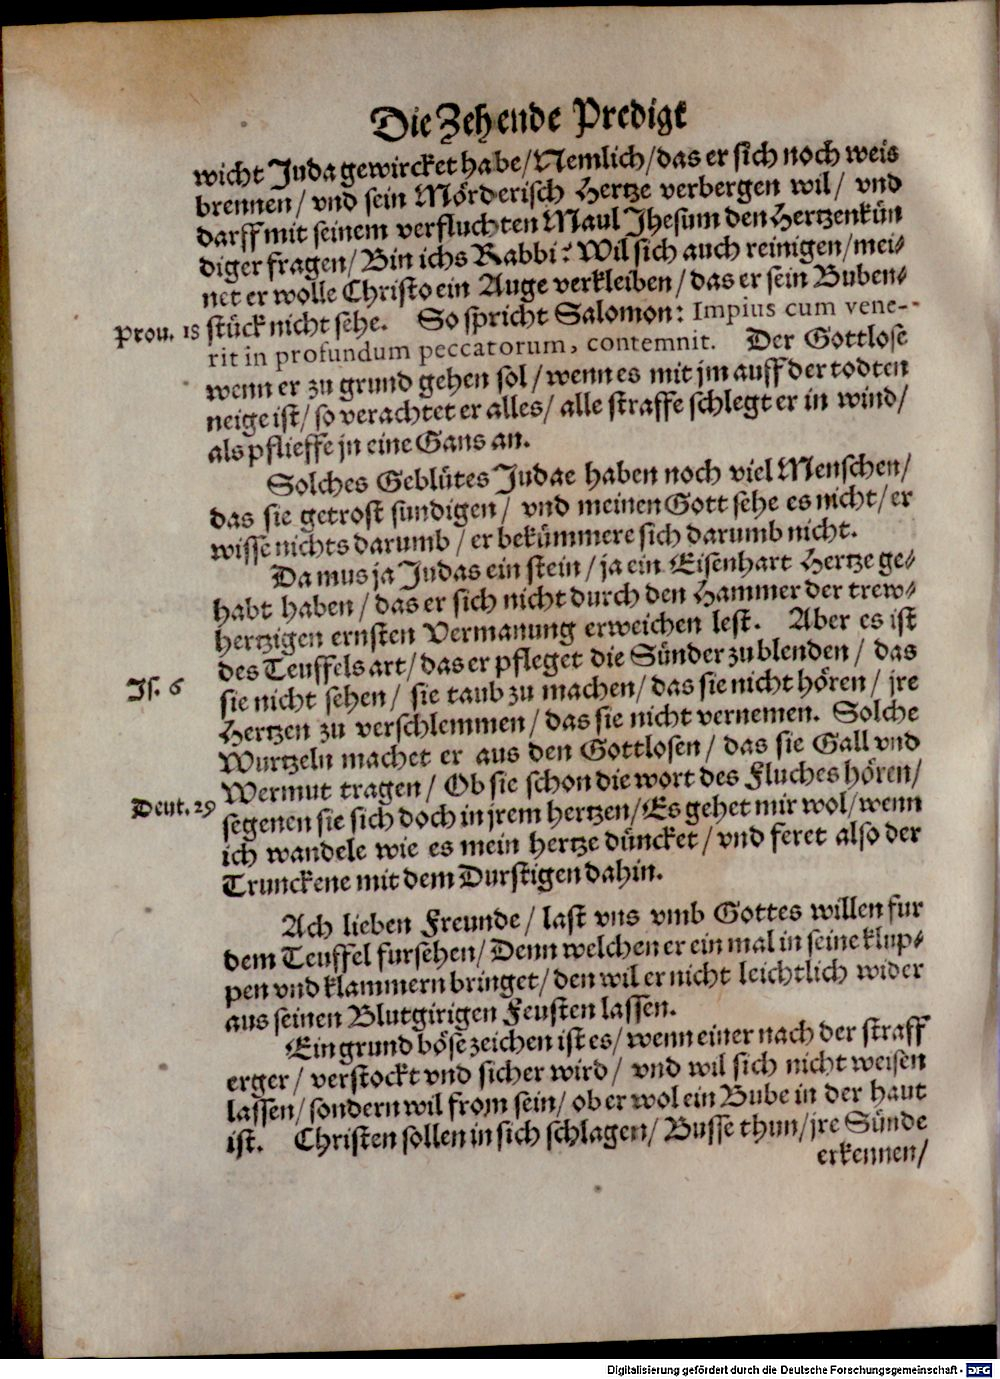 Die Zehende Predigt
wicht Juda gewircket habe/ Nemlich/ das er sich noch weis
brennen/ vnd sein Mörderisch Hertze verbergen wil/ vnd
darff mit seinem verfluchten Maul Jhesum den Hertzenkün
diger fragen/ Bin ichs Rabbi? Wil sich auch reinigen/ mei-
net er wolle Christo ein Auge verkleiben/ das er sein Buben-
Prou. 18 stück nicht sehe. So spricht Salomon: Impius cum vene-
rit in profundum peccatorum, contemnit. Der Gottlose
wenn er zu grund gehen sol/ wenn es mit jm auff der todten
neige ist/ so verachtet er alles/ alle straffe schlegt er in wind/
als pflieffe jn eine Gans an.
Solches Geblütes Judae haben noch viel Menschen/
das sie getrost sundigen/ vnd meinen Gott sehe es nicht/ er
wisse nichts darumb/ er bekümmere sich darumb nicht.
Da mus ja Judas ein stein/ ja ein Eisenhart Hertze ge-
habt haben/ das er sich nicht durch den Hammer der trew-
hertzigen ernsten Vermanung erweichen lest. Aber es ist
des Teuffels art/ das er pfleget die Sünder zu blenden/ das
Js. 6 sie nicht sehen/ sie taub zu machen/ das sie nicht hören/ jre
Hertzen zu verschlemmen/ das sie nicht vernemen. Solche
Wurtzeln machet er aus den Gottlosen/ das sie Gall vnd
Wermut tragen/ Ob sie schon die wort des Fluches hören/
Deut. 29 segenen sie sich doch in jrem hertzen/ Es gehet mir wol/ wenn
ich wandele wie es mein hertze düncket/ vnd feret also der
Trunckene mit dem Durstigen dahin.
Ach lieben Freunde/ last vns vmb Gottes willen fur
dem Teuffel fursehen/ Denn welchen er ein mal in seine klup-
pen vnd klammern bringet/ den wil er nicht leichtlich wider
aus seinen Blutgirigen Feusten lassen.
Ein grund böse zeichen ist es/ wenn einer nach der straff
erger/ verstockt vnd sicher wird/ vnd wil sich nicht weisen
lassen/ sondern wil from sein/ ob er wol ein Bube in der haut
ist. Christen sollen in sich schlagen/ Busse thun/ jre Sünde
erkennen/
Digitalisierung gefördert durch die Deutsche Forschungsgemeinschaft - DFG